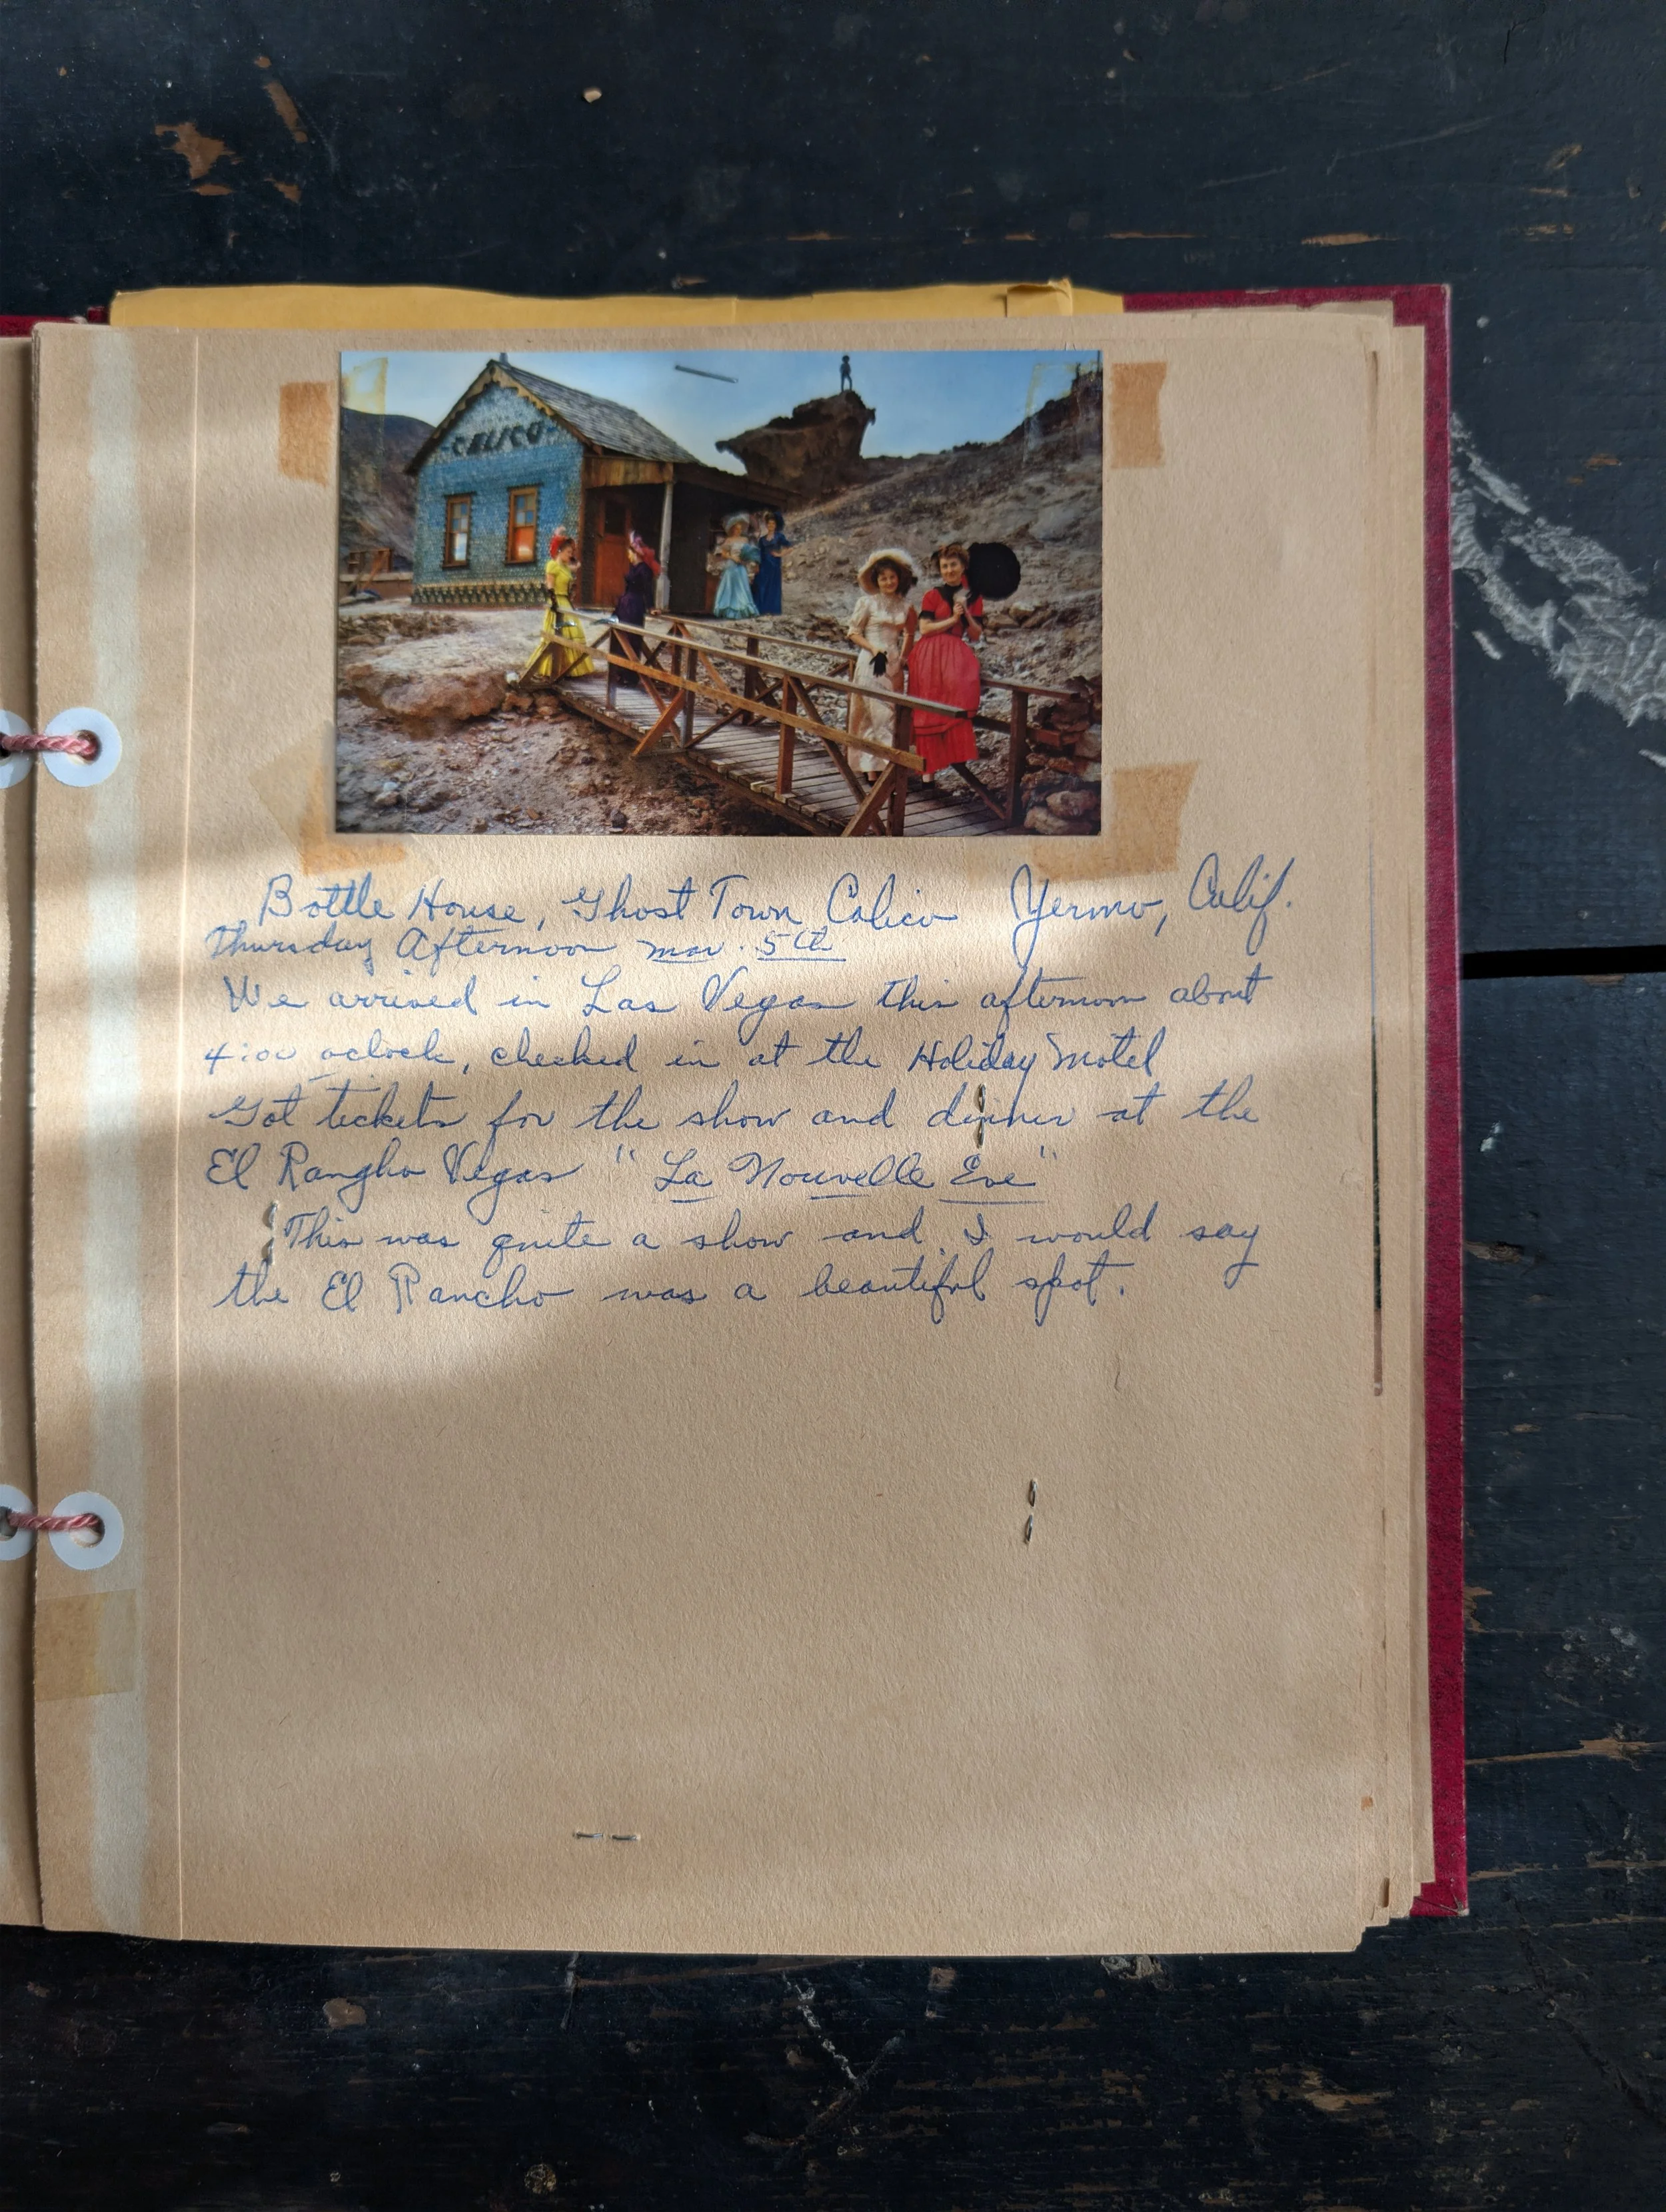 CALICO
Bottle House, Ghost Town Calico Yermo, Calif.
Thursday Afternoon mar. 5th
We arrived in Las Vegas this afternoon about
4:00 oclock, checked in at the Holiday Motel
Got tickets for the show and dinner at the
El Rangho Vegas "La Nouvelle Eve"
This was quite a show and I would say
the El Rancho was a beautiful spot.